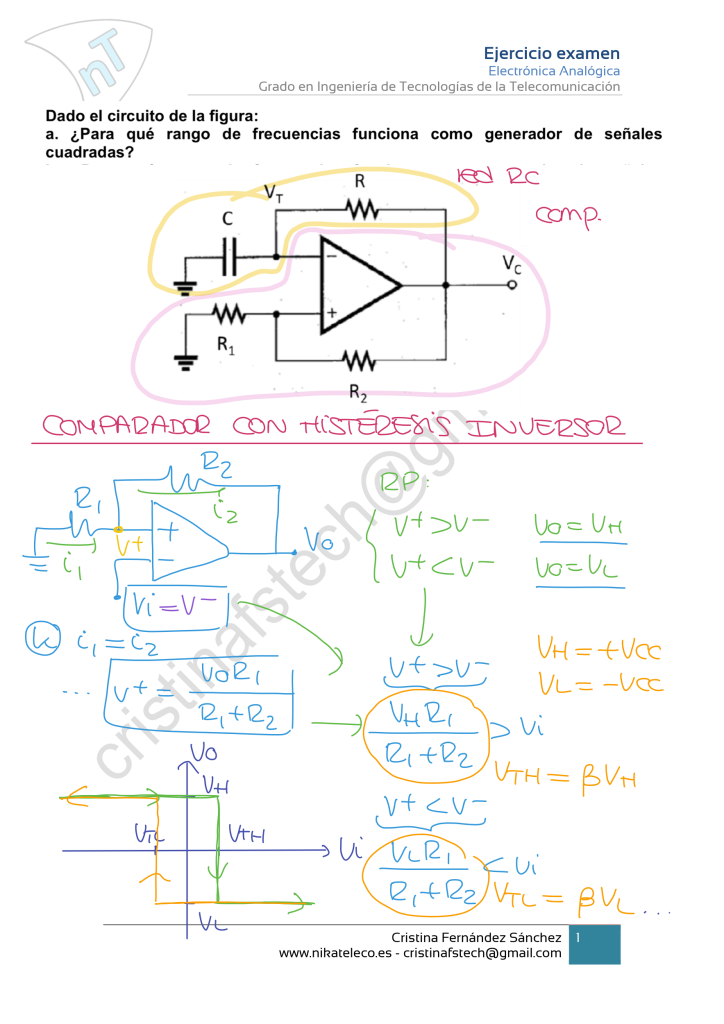 nT
Ejercicio examen
Electrónica Analógica
Grado en Ingeniería de Tecnologías de la Telecomunicación
Dado el circuito de la figura:
a. ¿Para qué rango de frecuencias funciona como generador de señales
cuadradas?
red RC
comp.
V_T
R
C
V_C
R_1
R_2
COMPARADOR CON HISTÉRESIS INVERSOR
R_2
R_1
i_2
V+
i_1
Vo
Vi = V-
RP:
V+ > V- Vo = V_H
V+ < V- Vo = V_L
(k) i_1 = i_2
... V+ = VoR_1 / R_1+R_2
V_H = +Vcc
V_L = -Vcc
V+ > V-
V_H R_1 / R_1+R_2 > Vi
V_TH = βV_H
V+ < V-
V_L R_1 / R_1+R_2 < Vi
V_TL = βV_L ...
Vo
V_H
V_TL
V_TH
Vi
V_L
cristinafstech@gm
Cristina Fernández Sánchez 1
www.nikateleco.es - cristinafstech@gmail.com